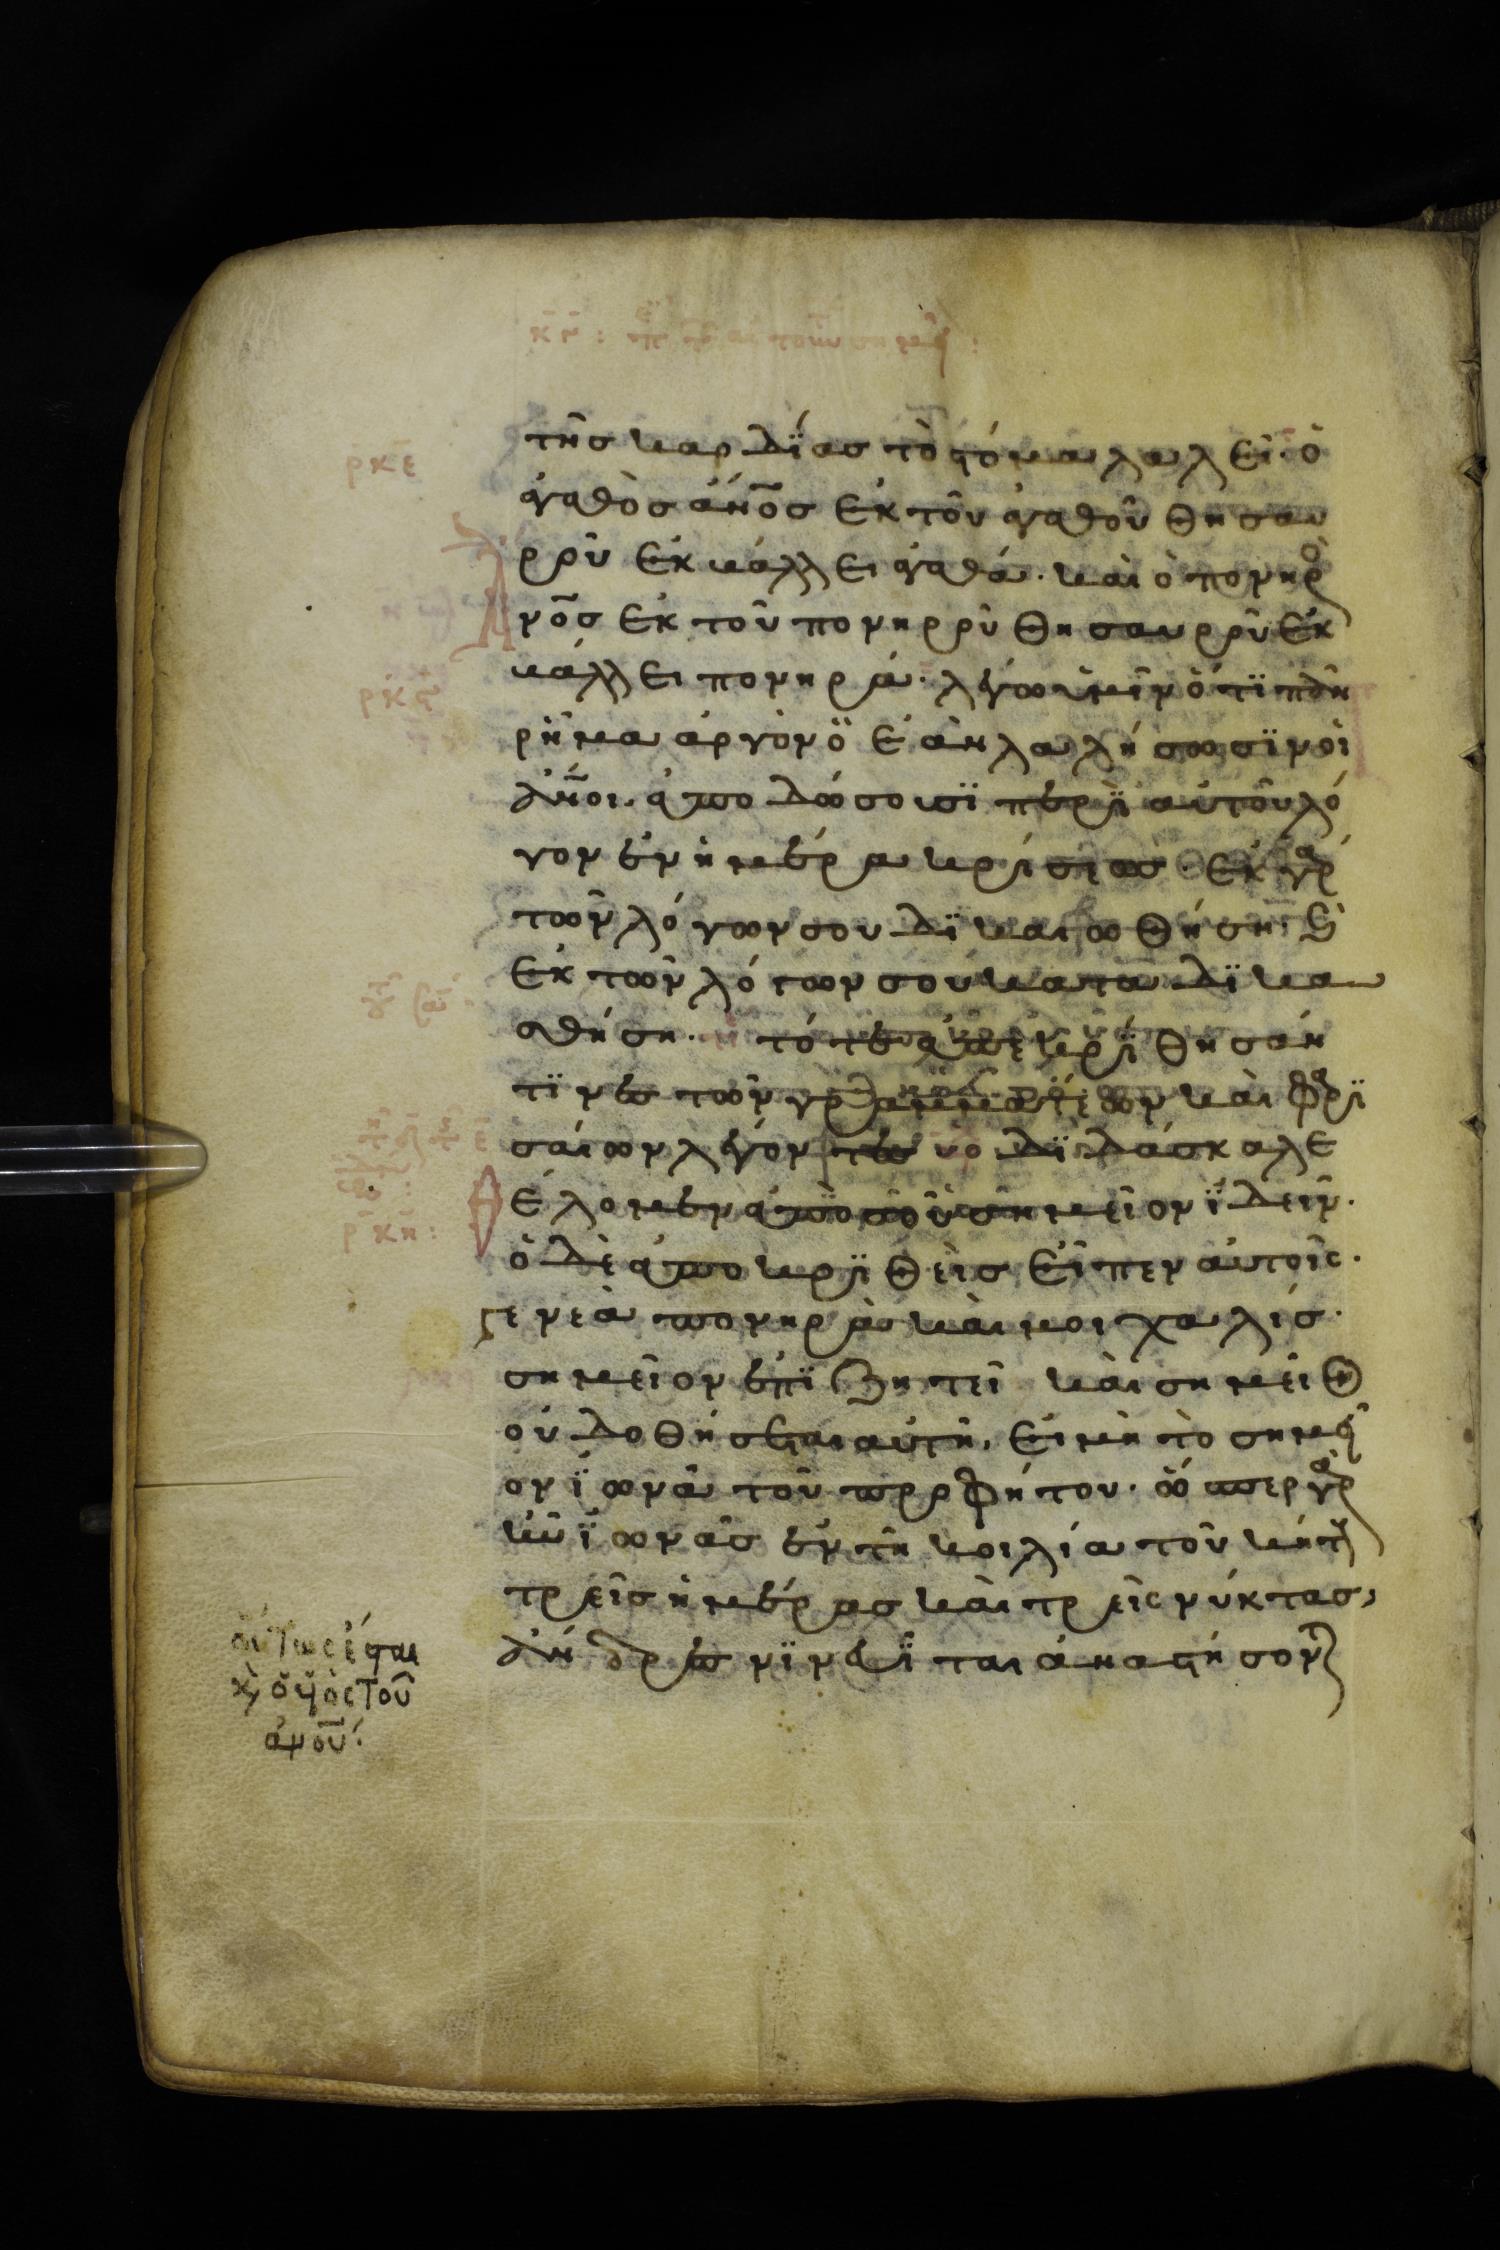 ρκε
τῆς καρδΐας τὸ στόμα λαλεῖ· ὁ
ἀγαθὸς ἄνος ἐκ τοῦ ἀγαθοῦ θησαυ
ροῦ ἐκβάλλει ἀγαθά· καὶ ὁ πονηρὸ
νος ἐκ τοῦ πονηροῦ θησαυροῦ ἐκ
βάλλει πονηρά· λέγω ὑμῖν ὅτϊ πᾶν
ρκϛ
ρῆμα ἀργὸν ὃ ἐὰν λαλήσωσϊν οἱ
ἄνοι, ἀποδώσουσϊ περὶ αὐτοῦ λό
γον ἐν ἡμέρα κρίσεως· ἐκ γὰρ
τῶν λόγων σου δϊκαιωθήση· καὶ
ἐκ τῶν λόγων σοῦ καταδϊκα
σθήση· τότε ἀπεκρΐθησάν
τϊνες τῶν γραμματέων καὶ φαρϊ
σαίων λέγοντες διδάσκαλε
θέλομεν ἀπὸ σοῦ σημεῖον ΐδεῖν·
ρκη:
ὁ δὲ ἀποκρϊθεὶς εἶπεν αὐτοῖς·
γενεὰ πονηρὰ καὶ μοιχαλίς·
σημεῖον ἐπϊζητεῖ καὶ σημεῖον
οὐ δοθήσεται αὐτῆ, εἰ μὴ τὸ σημεῖ
ον ΐωνᾶ τοῦ προφήτου· ὥσπερ γὰρ
ἦν ΐωνᾶς ἐν τῆ κοιλία τοῦ κήτους
τρεῖς ἡμέρας καὶ τρεῖς νύκτας,
ἄνδρες νϊνευΐται ἀναστήσον
οὕτως ἔσται
καὶ ὁ υἱὸς τοῦ
ἀνου·